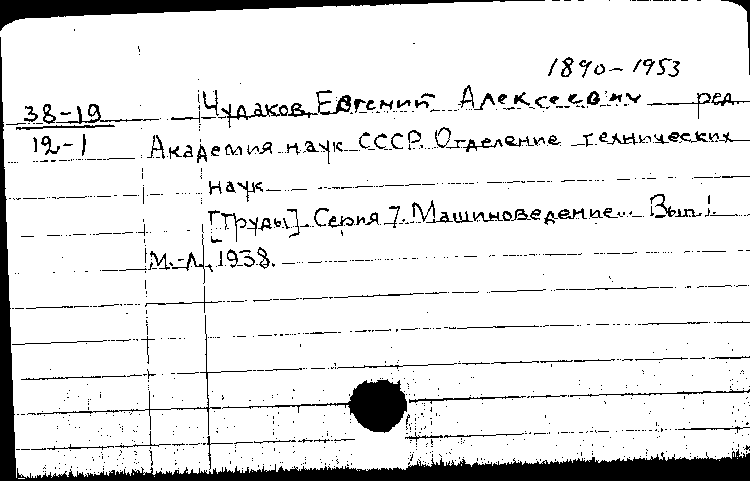 1890-1953
38-19 Чудаков, Евгений Алексеевич ред.
12-1 Академия наук СССР. Отделение технических
наук
[Труды]. Серия 7. Машиноведение... Вып. 1.
М.-Л., 1938.